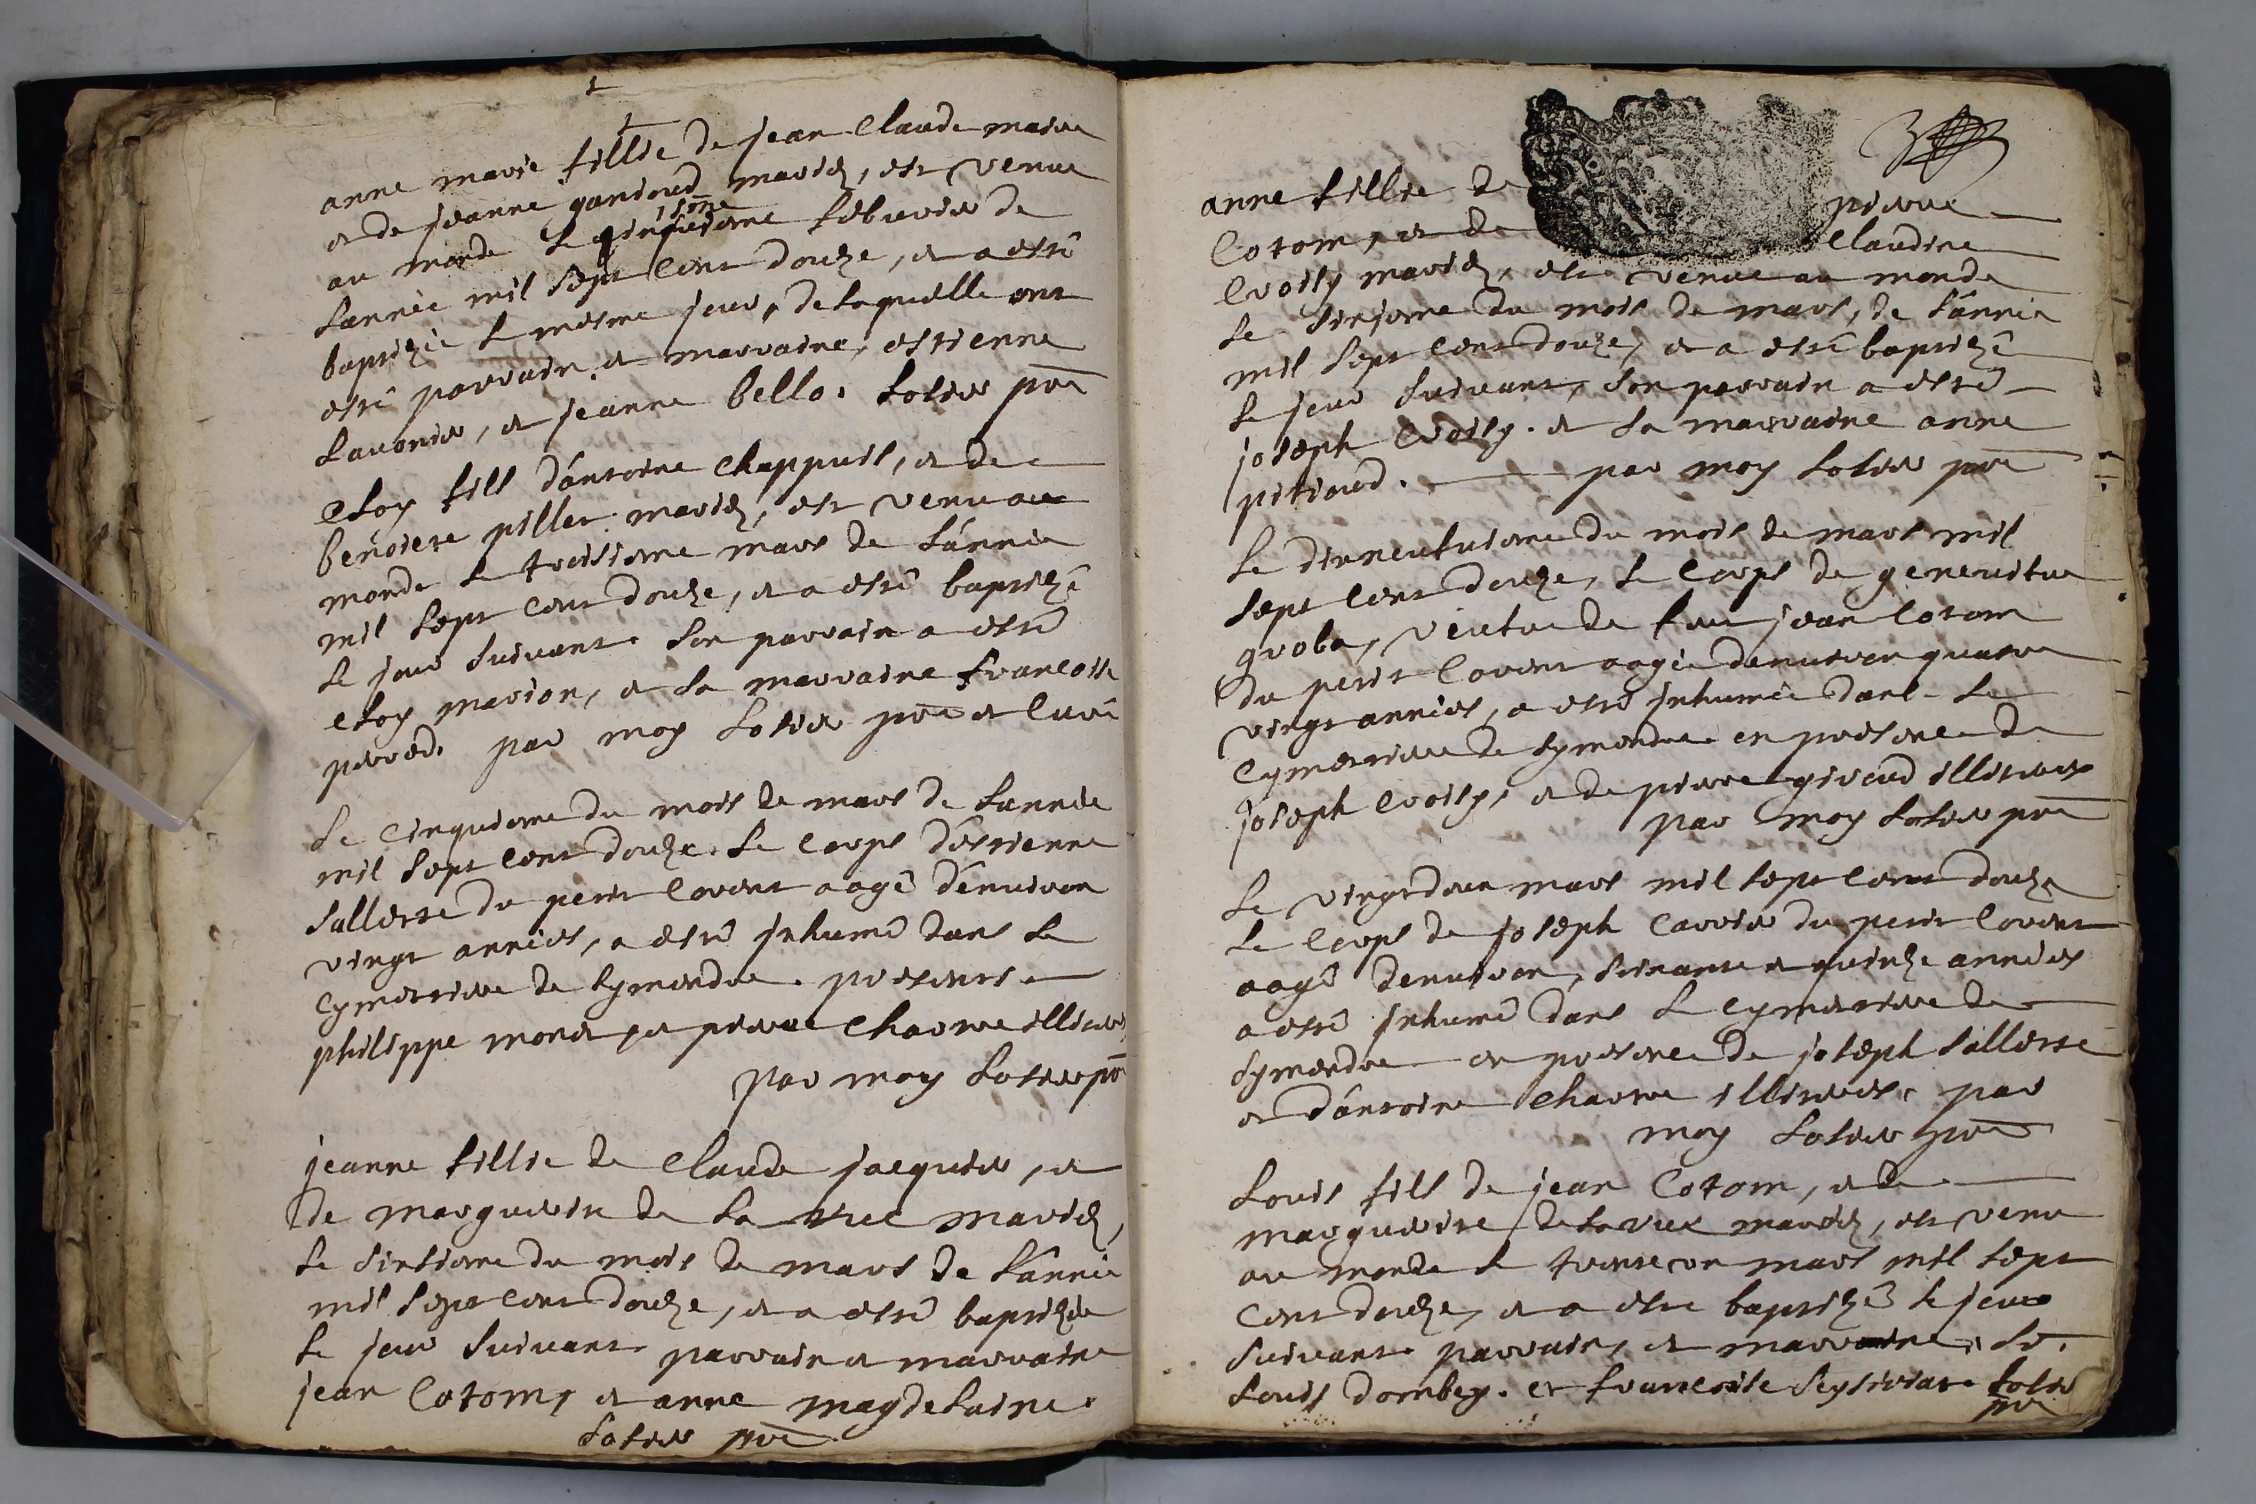 anne marie fillie de jean Claude maire
et de jeanne gandoud mariez, est venue
au monde le febvrier de
Lannée mil sept cent douze, et a esté
baptizée le mesme jour, de laquelle ont
esté parrain et marraine, estienne
Lauonier, et jeanne bello. Solier pre
Eloy fils d'antoine Chappuis, et de
benoiete pillet mariez, est venu au
monde le troisieme mars de L'année
mil sept cent douze, et a esté baptizé
le jour suivant. Son parrain a esté
Eloy marion, et sa marraine francoise
perrod. par moy Solier pre et Curé
Le Cinquieme du mois de mars de Lannée
mil sept cent douze. Le Corps d'estienne
Sallesse du petit Covent aagé d'environ
vingt années, a esté inhumé dans le
Cymetiere de Symendre. presents
philippe monet et pierre Charme illiteres
par moy Solier pre
jeanne fillie de Claude jacquier, et
de marguerite de La rue mariez,
Le sixsieme du mois de mars de L'année
mil sept cent douze, et a esté baptizée
le jour suivant. parrain et marraine
jean Cotom, et anne magdelaine.
Solier pre
anne fillie de pierre
Cotom, et de Claudine
Croisy mariez, est venue au monde
le sixsieme du mois de mars, de L'année
mil sept cent douze, et a esté baptizé
le jour suivant, son parrain a esté
joseph Croisy. et sa marraine anne
pitioud. par moy Solier pre
Le dixneufuieme du mois de mars mil
sept cent douze, le Corps de genevieve
groba, veufue de feu jean Cotom
du petit Covent aagée denviron quatre
vingt années, a esté inhumée dans le
Cymetiere de Symendre en presence de
joseph Croisy, et de pierre giroud illiteres
par moy Solier pre
Le vingtdeux mars mil sept cent douze
le Corps de joseph Carrier du petit Covent
aagé denviron, soixante et quinze années
a esté inhumé dans le Cymetiere de
Symendre en presence de joseph Sallesse
et d'antoine Charme illiteres, par
moy Solier pre
Louis fils de jean Cotom, et de
marguerite de La rue mariez, est venu
au monde le trente un mars mil sept
cent douze, et a esté baptizé le jour
suivant. parrain, et marraine, Sr.
Louis dombey. et francoise Solier
pre